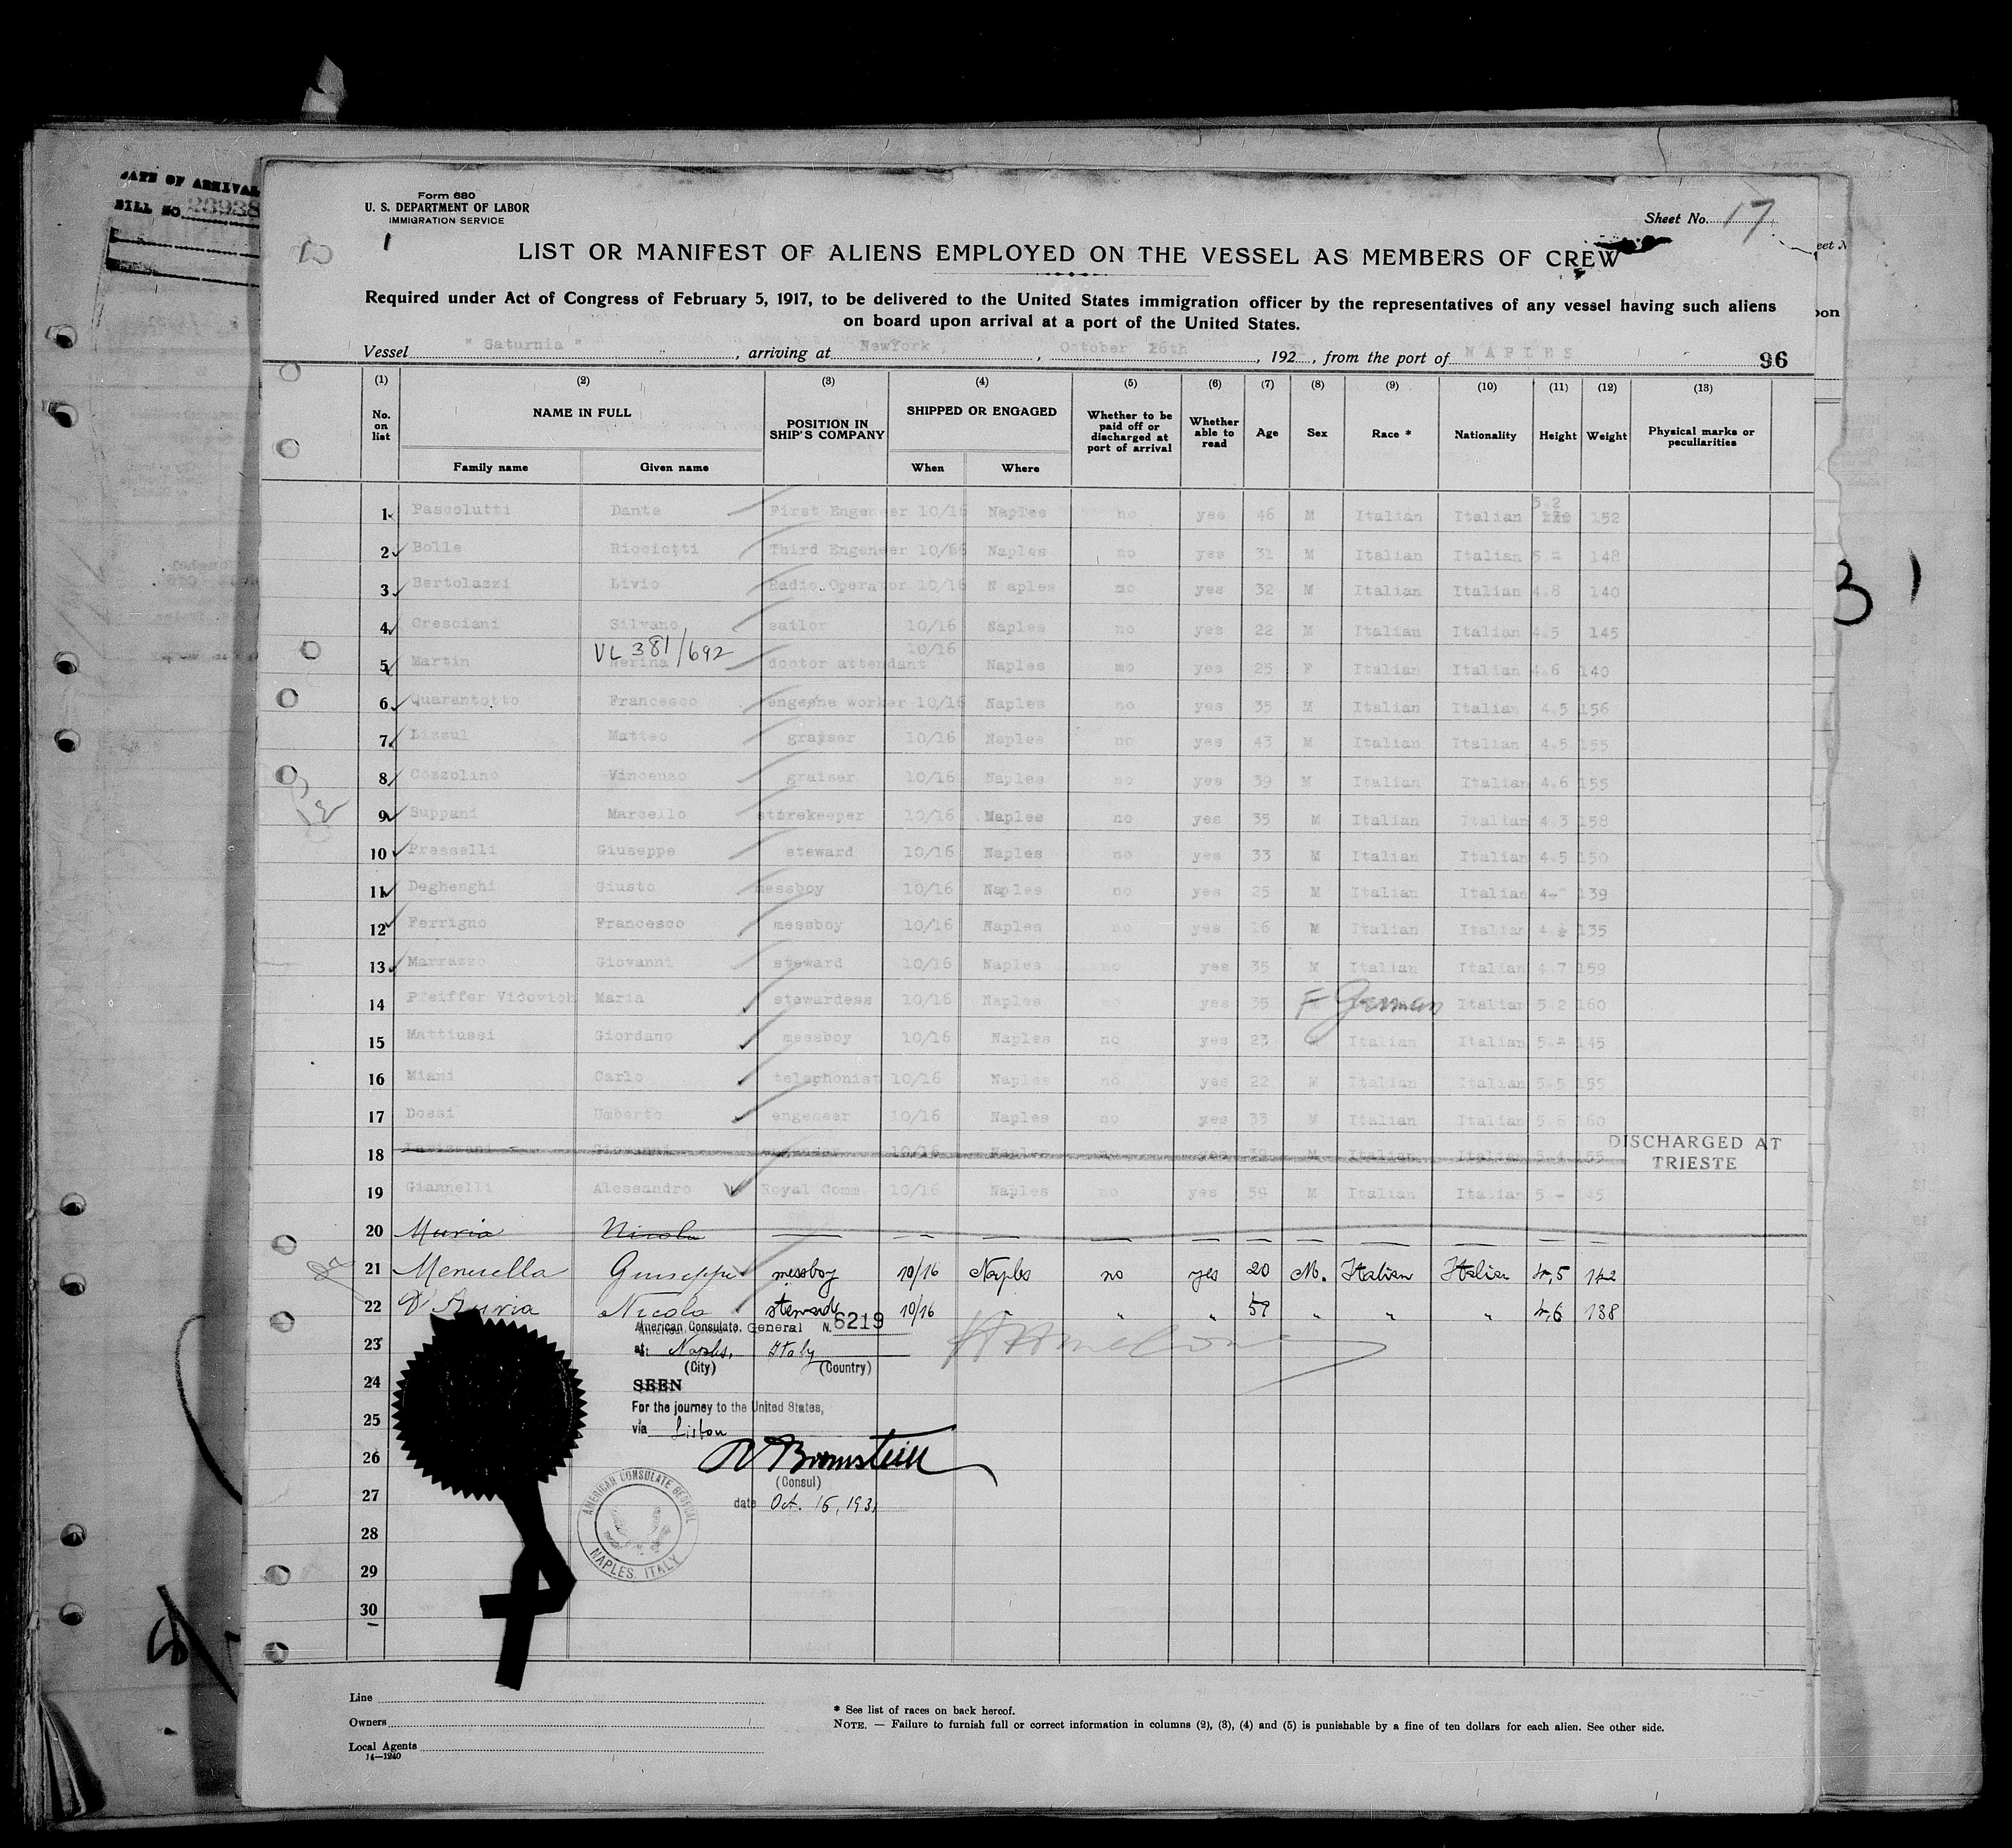 DATE OF ARRIVAL
BILL NO. 26938
Form 680
U. S. DEPARTMENT OF LABOR
IMMIGRATION SERVICE
Sheet No. 17
1
LIST OR MANIFEST OF ALIENS EMPLOYED ON THE VESSEL AS MEMBERS OF CREW
Required under Act of Congress of February 5, 1917, to be delivered to the United States immigration officer by the representatives of any vessel having such aliens
on board upon arrival at a port of the United States.
Vessel " Saturnia " , arriving at NewYork , October 26th , 192 31 , from the port of NAPLES 96
(1) (2) (3) (4) (5) (6) (7) (8) (9) (10) (11) (12) (13)
No. on list NAME IN FULL POSITION IN SHIP'S COMPANY SHIPPED OR ENGAGED Whether to be paid off or discharged at port of arrival Whether able to read Age Sex Race * Nationality Height Weight Physical marks or peculiarities
Family name Given name When Where
1 Pascolutti Dante First Engeneer 10/16 Naples no yes 46 M Italian Italian 5.2 152
2 Bolle Ricciotti Third Engeneer 10/16 Naples no yes 31 M Italian Italian 5.- 148
3 Bertolazzi Livio Radio Operator 10/16 N aples no yes 32 M Italian Italian 4.8 140
4 Cresciani Silvano sailor 10/16 Naples no yes 22 M Italian Italian 4.5 145
VL 381/692
5 Martin Nerina doctor attendant 10/16 Naples no yes 25 F Italian Italian 4.6 140
6 Quarantotto Francesco engeene worker 10/16 Naples no yes 35 M Italian Italian 4.5 156
7 Lizzul Matteo graiser 10/16 Naples no yes 43 M Italian Italian 4.5 155
8 Cozzolino Vincenzo graiser 10/16 Naples no yes 39 M Italian Italian 4.6 155
9 Suppani Marcello storekeeper 10/16 Naples no yes 35 M Italian Italian 4.3 158
10 Presselli Giuseppe steward 10/16 Naples no yes 33 M Italian Italian 4.5 150
11 Deghenghi Giusto messboy 10/16 Naples no yes 25 M Italian Italian 4- 139
12 Ferrigno Francesco messboy 10/16 Naples no yes 16 M Italian Italian 4. 135
13 Marrazzo Giovanni steward 10/16 Naples no yes 35 M Italian Italian 4.7 159
14 Pfeiffer Vidovich Maria stewardess 10/16 Naples no yes 35 F German Italian 5.2 160
15 Mattiussi Giordano messboy 10/16 Naples no yes 23 M Italian Italian 5.- 145
16 Miani Carlo telephonist 10/16 Naples no yes 22 M Italian Italian 5.5 155
17 Dossi Umberto engeneer 10/16 Naples no yes 33 M Italian Italian 5.6 160
18 Giovanni 10/16 Naples no yes 39 M Italian Italian 5.4 155 DISCHARGED AT TRIESTE
19 Giannelli Alessandro Royal Comm. 10/16 Naples no yes 59 M Italian Italian 5 - 145
20 Muria Nicola — — — — — — — — — — —
21 Menuella Giuseppe messboy 10/16 Naples no yes 20 M. Italian Italia 4,5 142
22 D'Auria Nicola steward 10/16 " " " 59 " " " 4,6 138
23
24
25
26
27
28
29
30
American Consulate. General N. 6219
at: Naples, Italy
(City) (Country)
SEEN
For the journey to the United States,
via Lisbon
(Consul)
date Oct. 16, 1931
AMERICAN CONSULATE GENERAL
NAPLES, ITALY
Line
Owners
Local Agents
14—1240
* See list of races on back hereof.
NOTE. — Failure to furnish full or correct information in columns (2), (3), (4) and (5) is punishable by a fine of ten dollars for each alien. See other side.